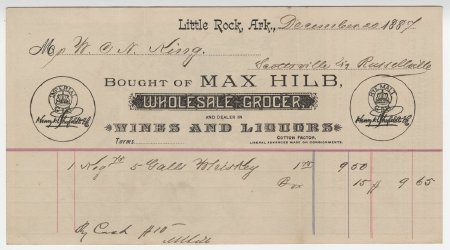 Little Rock, Ark., December 20 1887
W. C. N. King.
Scottsville Russellville
BOUGHT OF MAX HILB,
WHOLESALE GROCER,
AND DEALER IN
WINES AND LIQUORS
COTTON FACTOR.
Terms LIBERAL ADVANCES MADE ON CONSIGNMENTS.
1 Keg 5 Galls Whiskey 1 80 9 00
Box 15 9 65
By Cash $10